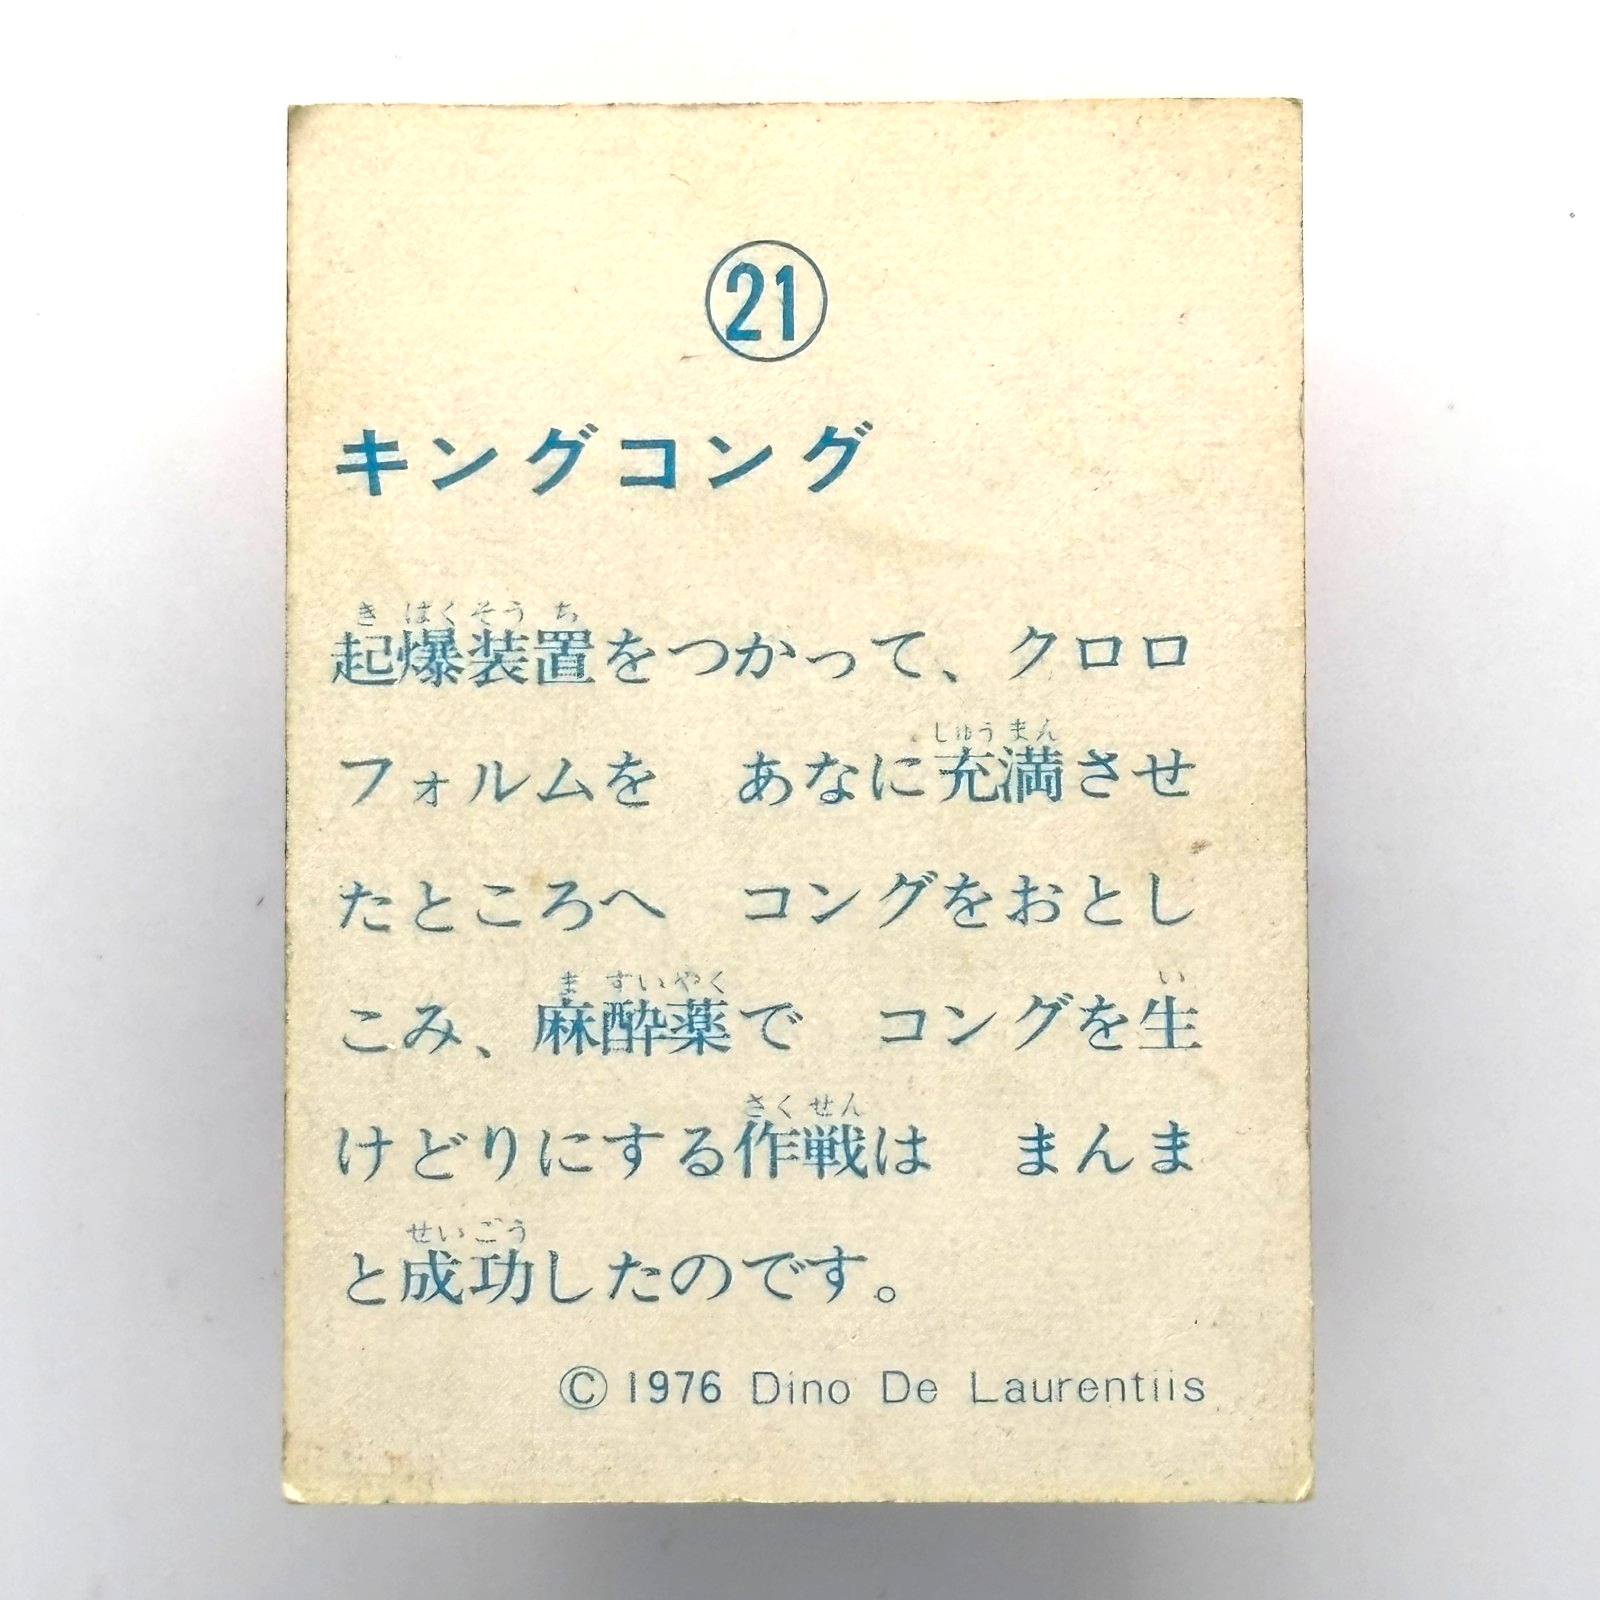 21
キングコング
き ばくそう ち
起爆装置をつかって、クロロ
しゅう まん
フォルムを　あなに充満させ
たところへ　コングをおとし
ま すいやく い
こみ、麻酔薬で　コングを生
さく せん
けどりにする作戦は　まんま
せい ごう
と成功したのです。
©1976 Dino De Laurentiis